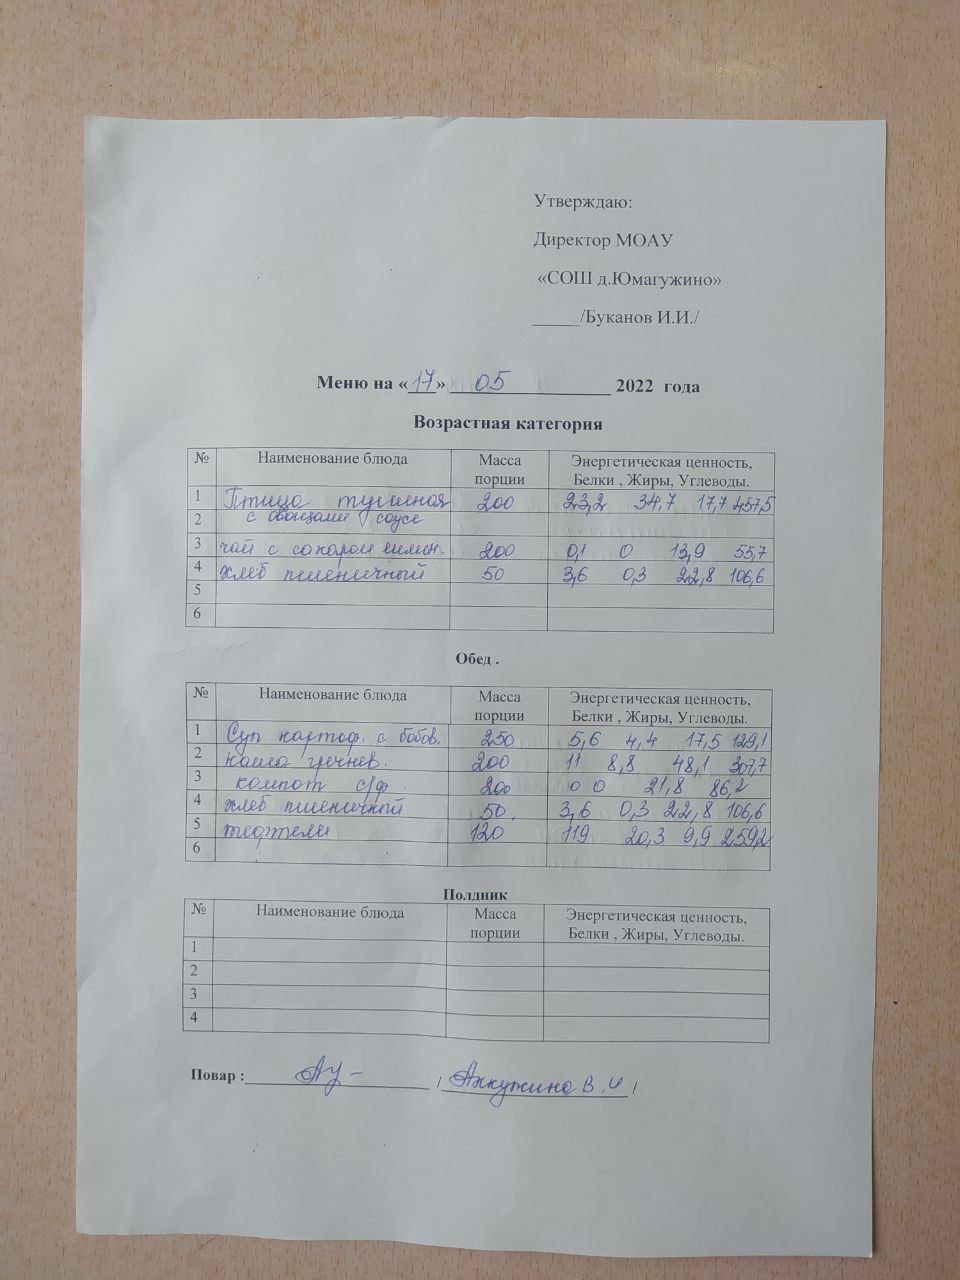 Утверждаю:
Директор МОАУ
«СОШ д.Юмагужино»
_____/Буканов И.И./
Меню на «17» 05 2022 года
Возрастная категория
№ Наименование блюда Масса порции Энергетическая ценность, Белки , Жиры, Углеводы.
1 Птица тушеная 200 23,2 34,7 17,7 457,5
2 с овощами соусе
3 чай с сахаром лимон. 200 0,1 0 13,9 55,7
4 хлеб пшеничный 50 3,6 0,3 22,8 106,6
5
6
Обед .
№ Наименование блюда Масса порции Энергетическая ценность, Белки , Жиры, Углеводы.
1 Суп картоф. с бобов. 250 5,6 4,4 17,5 129,1
2 каша гречнев. 200 11 8,8 48,1 307,7
3 компот с/ф 200 0 0 21,8 86,2
4 хлеб пшеничный 50. 3,6 0,3 22,8 106,6
5 тефтели 120 119 20,3 9,9 259,2
6
Полдник
№ Наименование блюда Масса порции Энергетическая ценность, Белки , Жиры, Углеводы.
1
2
3
4
Повар : / Аккужина В.И /